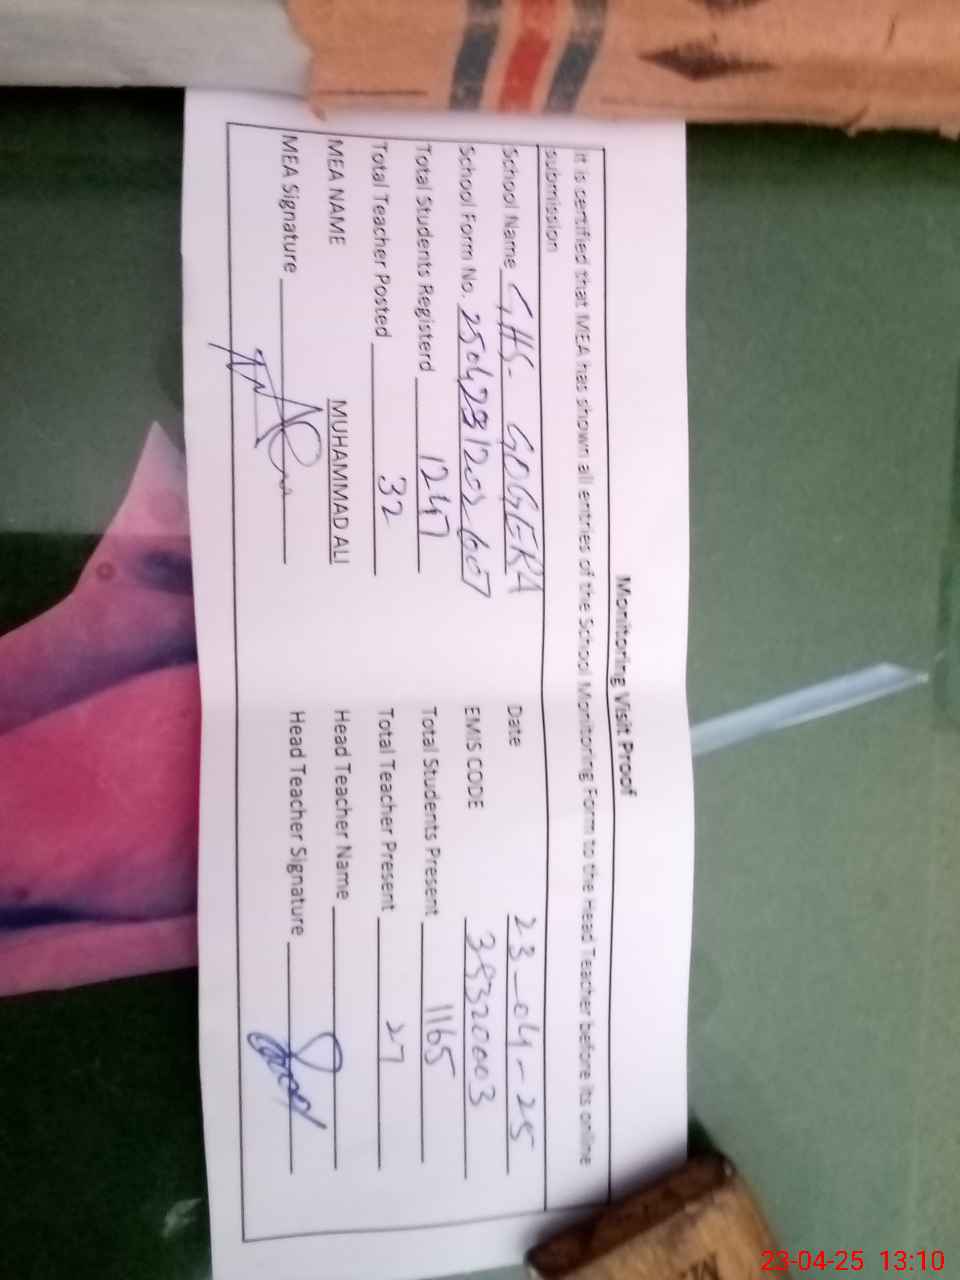 Monitoring Visit Proof
It is certified that MEA has shown all entries of the School Monitoring Form to the Head Teacher before its online
submission
School Name GHS- GOGERA Date 23-04-25
School Form No. EMIS CODE
Total Students Registerd 1247 Total Students Present 1165
Total Teacher Posted 32 Total Teacher Present 27
MEA NAME MUHAMMAD ALI Head Teacher Name
MEA Signature Head Teacher Signature
23-04-25 13:10